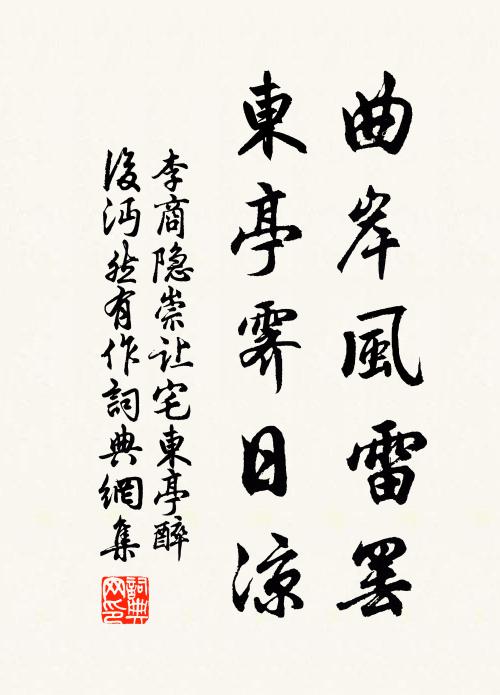 曲岸風雷罢
東亭霽日凉
李商隐崇让宅東亭醉
後沔然有作詞典網集
詞典
网印